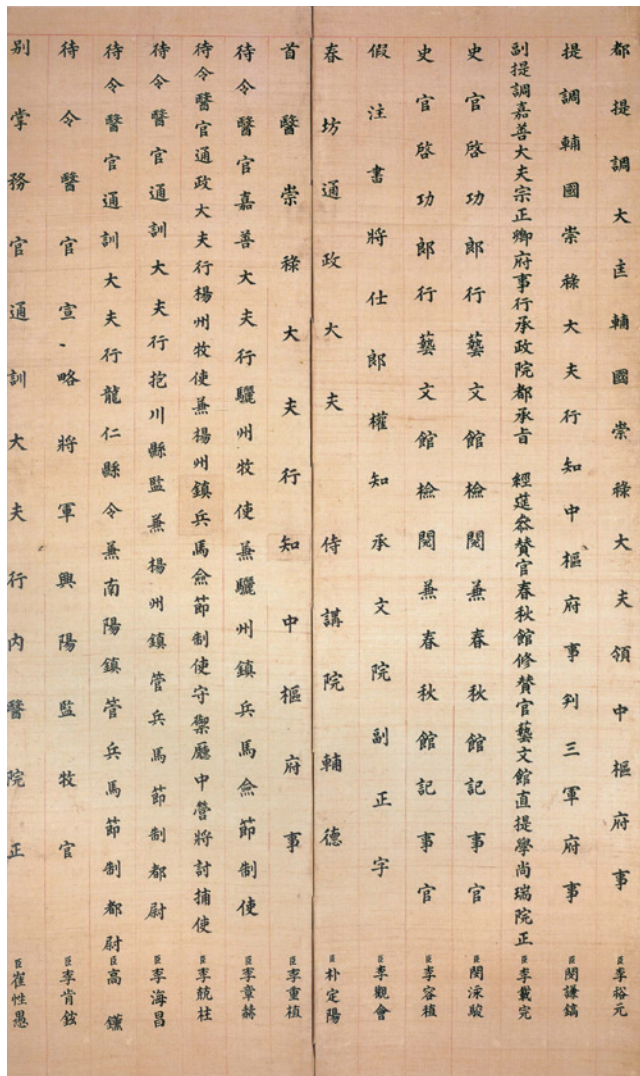 都提調大匡輔國崇祿大夫領中樞府事 臣李裕元
提調輔國崇祿大夫行知中樞府事判三軍府事 臣閔謙鎬
副提調嘉善大夫宗正卿府事行承政院都承旨 經筵參贊官春秋館修贊官藝文館直提學尚瑞院正 臣李載完
史官啓功郎行藝文館檢閱兼春秋館記事官 臣閔泳駿
史官啓功郎行藝文館檢閱兼春秋館記事官 臣李容植
假注書將仕郎權知承文院副正字 臣李觀會
春坊通政大夫 侍講院輔德 臣朴定陽
首醫崇祿大夫行知中樞府事 臣李重植
待令醫官嘉善大夫行驪州牧使兼驪州鎮兵馬僉節制使 臣李章赫
待令醫官通政大夫行楊州牧使兼楊州鎮兵馬僉節制使守禦廳中營將討捕使 臣李兢柱
待令醫官通訓大夫行抱川縣監兼楊州鎮管兵馬節制都尉 臣李海昌
待令醫官通訓大夫行龍仁縣令兼南陽鎮管兵馬節制都尉 臣高
待令醫官宣略將軍興陽監牧官 臣李肯鉉
別掌務官通訓大夫行內醫院正 臣崔性愚